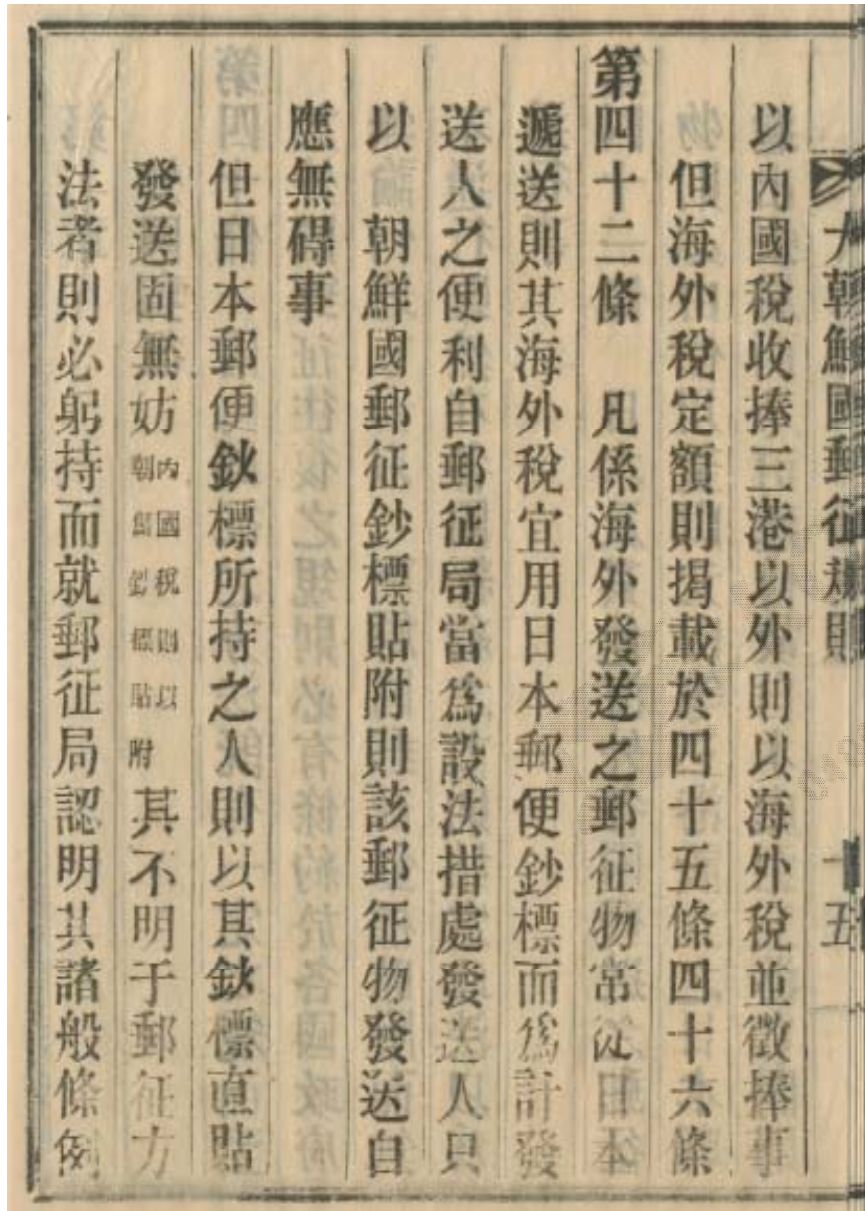 大朝鮮國郵征規則 十五
以內國稅收捧三港以外則以海外稅並徵捧事
但海外稅定額則揭載於四十五條四十六條
第四十二條 凡係海外發送之郵征物常從日本
遞送則其海外稅宜用日本郵便鈔標而爲計發
送人之便利自郵征局當爲設法措處發送人只
以 朝鮮國郵征鈔標貼附則該郵征物發送自
應無碍事
但日本郵便鈥標所持之人則以其鈥標直貼
發送固無妨內國稅則以朝鮮鈔標貼附其不明于郵征方
法者則必躬持而就郵征局認明其諸般條例